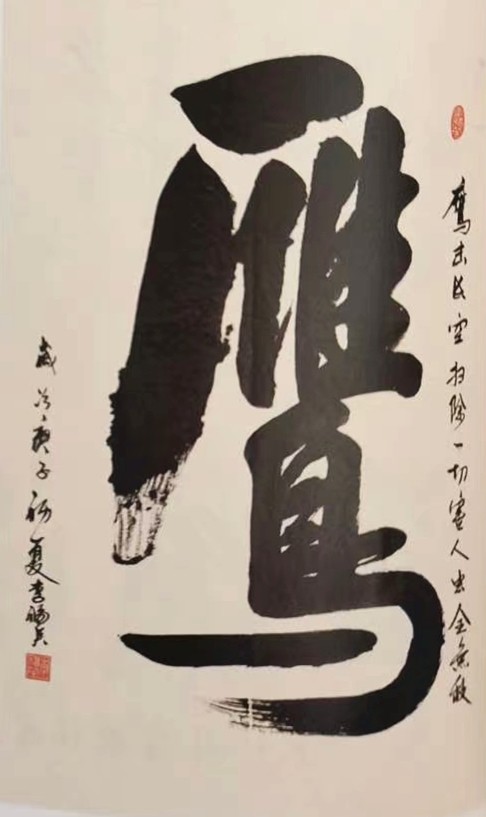 鹰击长空扫除一切害人虫全無敌
鹰
歲次庚子初夏李